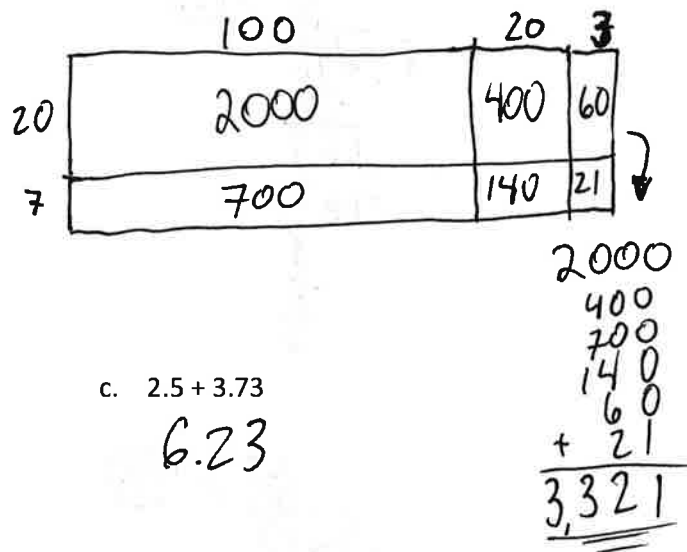 100 20 3
20 2000 400 60
7 700 140 21
2000
400
700
140
60
+ 21
3,321
c. 2.5 + 3.73
6.23